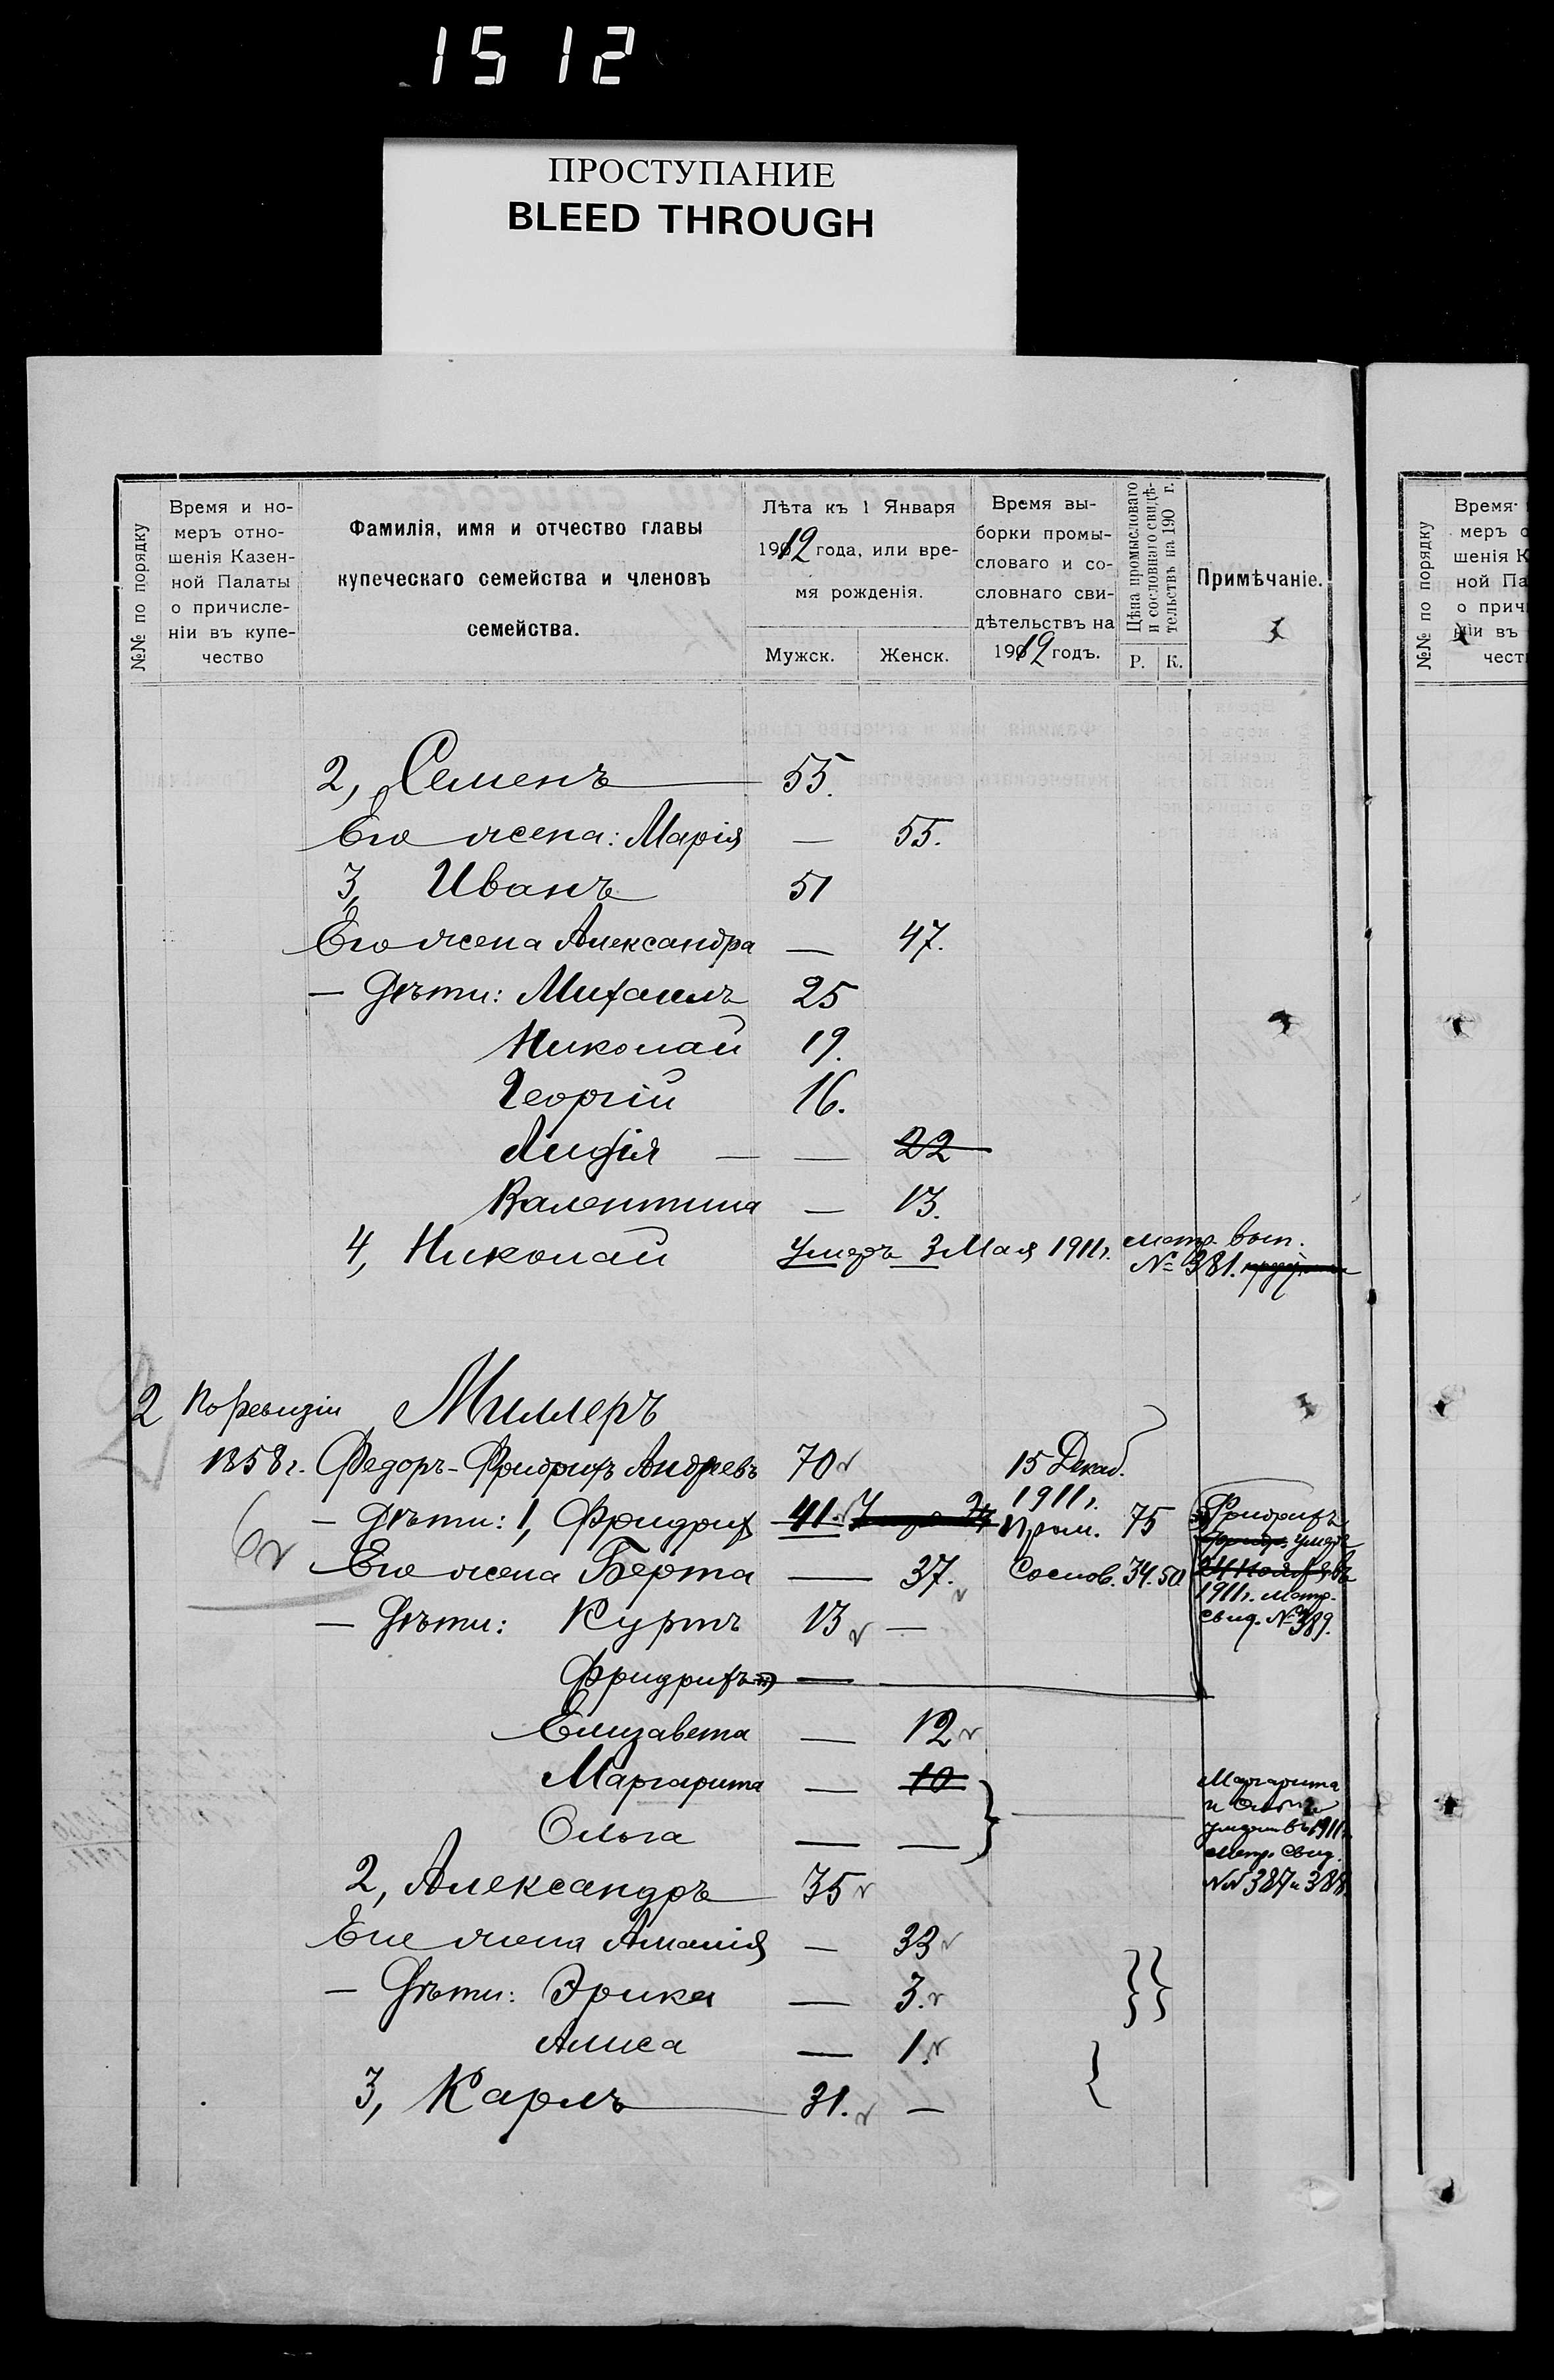 1512
ПРОСТУПАНИЕ
BLEED THROUGH
№№ по порядку
Время и но-
меръ отно-
шенія Казен-
ной Палаты
о причисле-
ніи въ купе-
чество
Фамилія, имя и отчество главы
купеческаго семейства и членовъ
семейства.
Лѣта къ 1 Января
1912 года, или вре-
мя рожденія.
Мужск. Женск.
Время вы-
борки промы-
словаго и со-
словнаго сви-
дѣтельствъ на
1912 годъ.
Цѣна промысловаго
и сословнаго свидѣ-
тельствъ на 190 г.
Р. К.
Примѣчаніе.
2, Семенъ 55.
Его жена: Марія — 55.
3, Иванъ 51
Его жена Александра — 47.
— Дѣти: Михаилъ 25
Николай 19.
Георгій 16.
Лидія — — 22
Валентина — 13.
4, Николай умеръ 3 Мая 1911 г. метр. вып.
№ 381.
2 По ревизіи Миллеръ
1858 г. Федоръ-Фридрихъ Андреевъ 70 15 Декаб.
— Дѣти: 1, Фридрих 41. 1911 г.
Пром. 75
Его жена Берта — 37. Сослов. 34.50
Фридрихъ
умеръ
1911 г. метр.
свид. № 389.
— Дѣти: Куртъ 13 —
Фридрихъ —
Елизавета — 12
Маргарита — 10
Ольга — —
Маргарита
и Ольга
умерли въ 1911 г.
метр. свид.
№№ 387 и 388.
2, Александръ 35
Его жена Амалія — 33
— Дѣти: Эрика — 3.
Алиса — 1.
3, Карлъ 31. —
№№ по порядку
Время
меръ о
шенія К
ной Па
о прич
ніи въ
чест